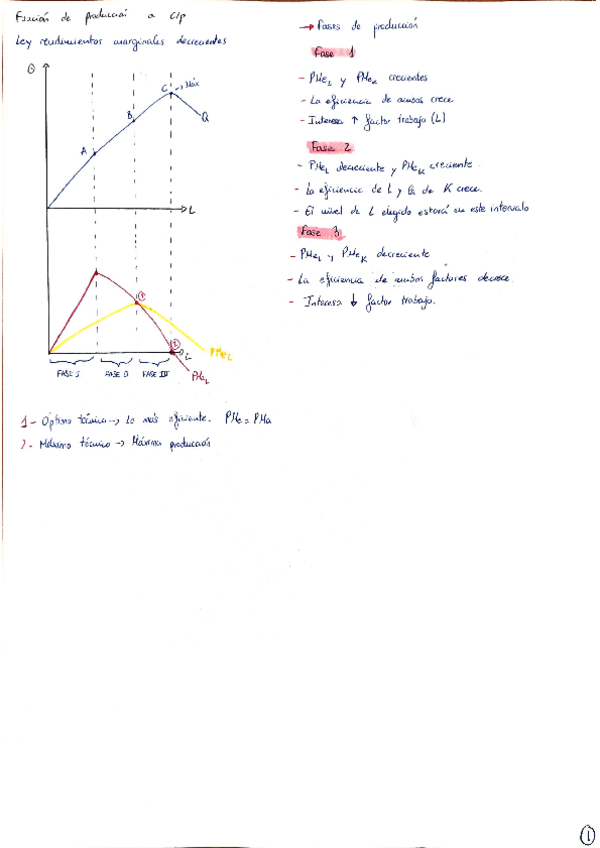 Función de producción a C/p
Ley rendimientos marginales decrecientes
Q
C → Máx
B
Q
A
L
①
PMeL
②
L
FASE I FASE II FASE III
PMaL
1 - Óptimo técnico → Lo más eficiente. PMe = PMa
2 - Máximo técnico → Máxima producción
→ Fases de producción
Fase 1
- PMeL y PMeK crecientes
- La eficiencia de ambos crece
- Interesa ↑ factor trabajo (L)
Fase 2
- PMeL decreciente y PMeK creciente.
- La eficiencia de L y de K crece.
- El nivel de L elegido estará en este intervalo
Fase 3
- PMeL y PMeK decreciente
- La eficiencia de ambos factores decrece.
- Interesa ↓ factor trabajo.
①